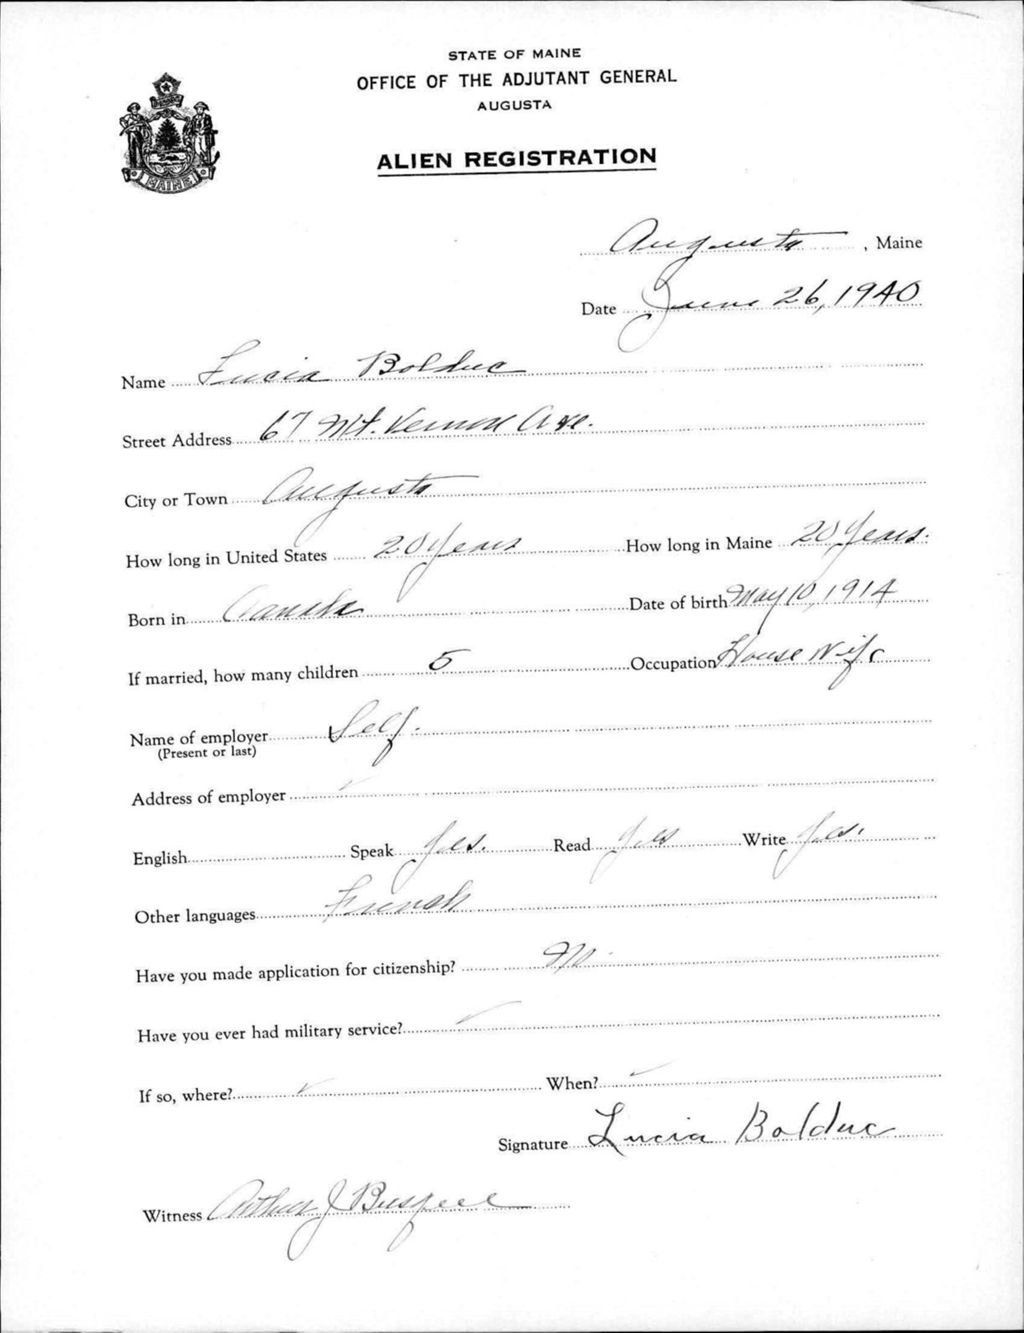 STATE OF MAINE
OFFICE OF THE ADJUTANT GENERAL
AUGUSTA
ALIEN REGISTRATION
MAINE
Augusta, Maine
Date June 26, 1940
Name Lucia Bolduc
Street Address 67 Mt. Vernon Ave.
City or Town Augusta
How long in United States 20 years How long in Maine 20 years.
Born in Canada Date of birth May 10, 1914
If married, how many children 5 Occupation House Wife
Name of employer Self.
(Present or last)
Address of employer
English Speak Yes. Read Yes Write Yes.
Other languages French
Have you made application for citizenship? No.
Have you ever had military service?
If so, where? When?
Signature Lucia Bolduc
Witness Arthur J